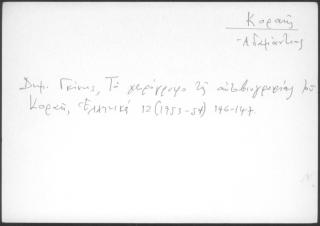 Κοραῆς
-Ἀδαμάντιος
Δημ. Γκίνης, Τὸ χειρόγραφο τῆς αὐτοβιογραφίας τοῦ
Κοραῆ, Ἑλληνικά 12 (1953-54) 146-147.